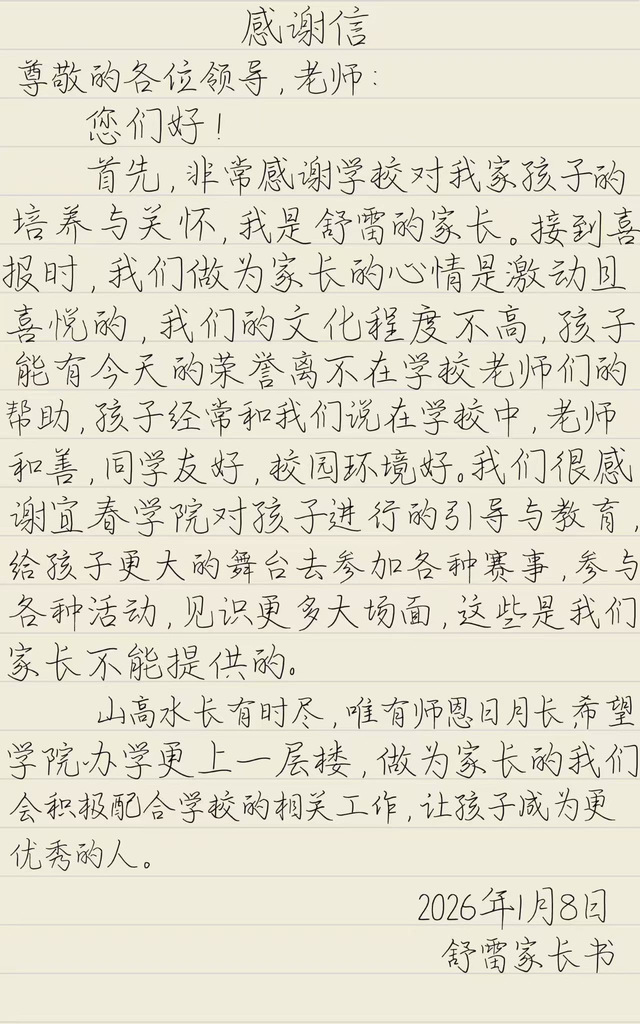 感谢信
尊敬的各位领导,老师:
您们好!
首先,非常感谢学校对我家孩子的
培养与关怀,我是舒雷的家长。接到喜
报时,我们做为家长的心情是激动且
喜悦的,我们的文化程度不高,孩子
能有今天的荣誉离不在学校老师们的
帮助,孩子经常和我们说在学校中,老师
和善,同学友好,校园环境好。我们很感
谢宜春学院对孩子进行的引导与教育,
给孩子更大的舞台去参加各种赛事,参与
各种活动,见识更多大场面,这些是我们
家长不能提供的。
山高水长有时尽,唯有师恩日月长,希望
学院办学更上一层楼,做为家长的我们
会积极配合学校的相关工作,让孩子成为更
优秀的人。
2026年1月8日
舒雷家长书